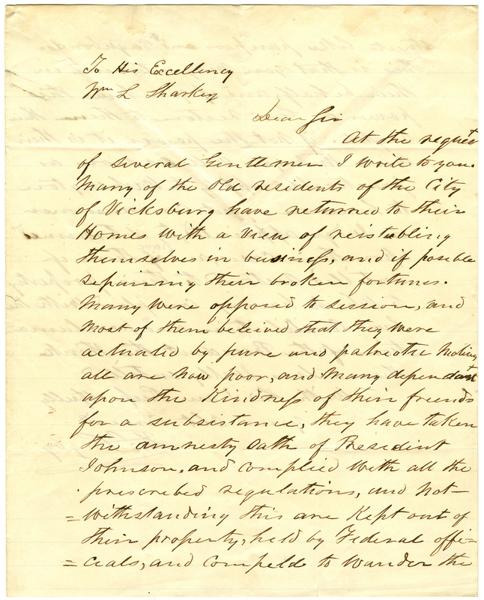 To His Excellency
Wm L Sharkey
Dear Sir
At the request
of several Gentlemen I write to you.
Many of the old residents of the City
of Vicksburg have returned to their
Homes with a view of reistabling
themselves in business, and if posible
repairing their broken fortunes.
Many were opposed to session, and
most of them beleived that they were
actuated by pure and patriotic Motives
all are now poor, and many dependant
upon the Kindness of their friends
for a subsistance, they have taken
the amnesty Oath of President
Johnson, and complied with all the
prescribed regulations, and not-
=withstanding this are Kept out of
their property, held by Federal offi-
=cials, and compeld to wander the